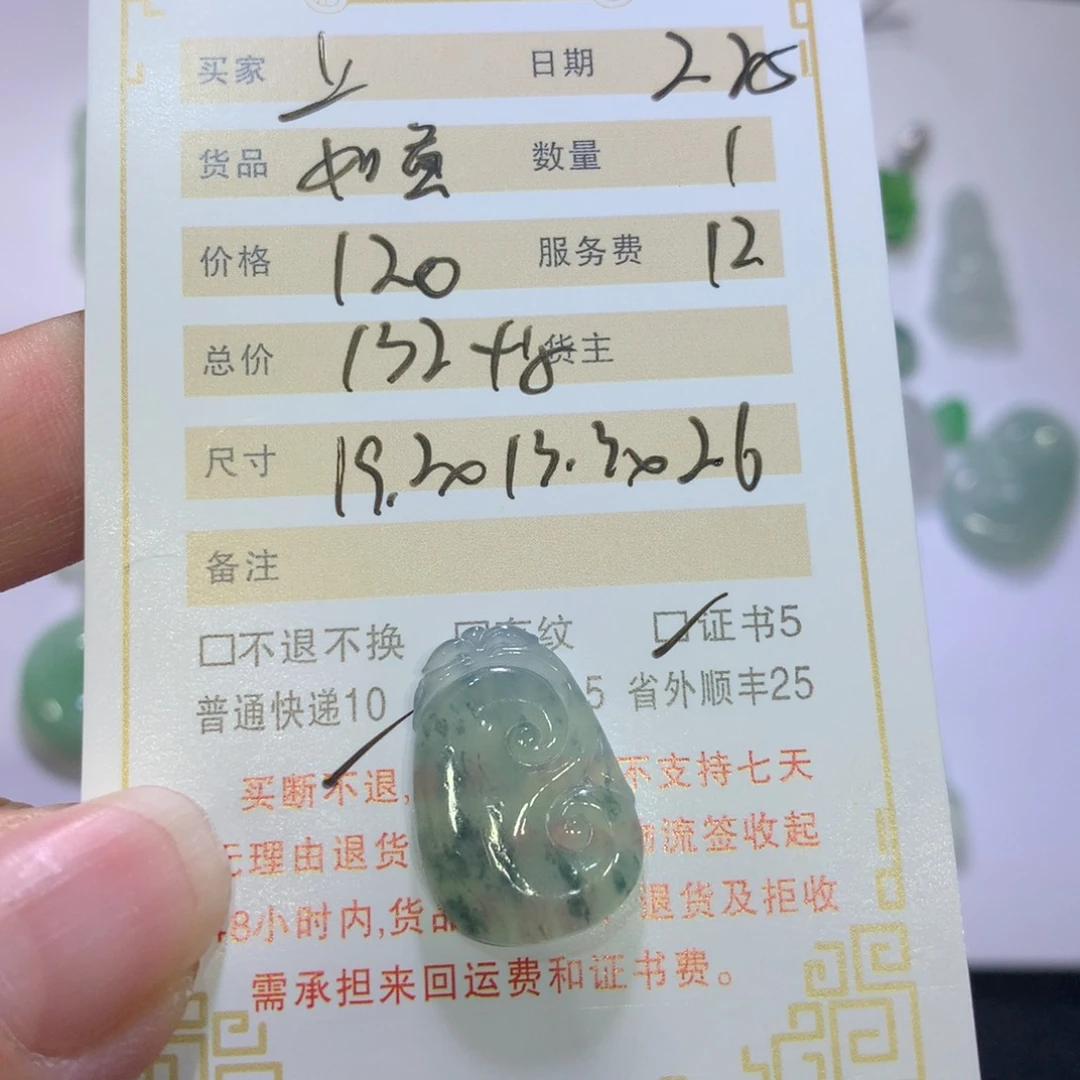 买家 立 日期 2.25
货品 如意 数量 1
价格 120 服务费 12
总价 132 货主
尺寸 19.2×13.3×2.6
备注
□不退不换 纹 □证书5
普通快递10 5 省外顺丰25
买断不退, 不支持七天
理由退货 流签收起
48小时内,货品 退货及拒收
需承担来回运费和证书费。